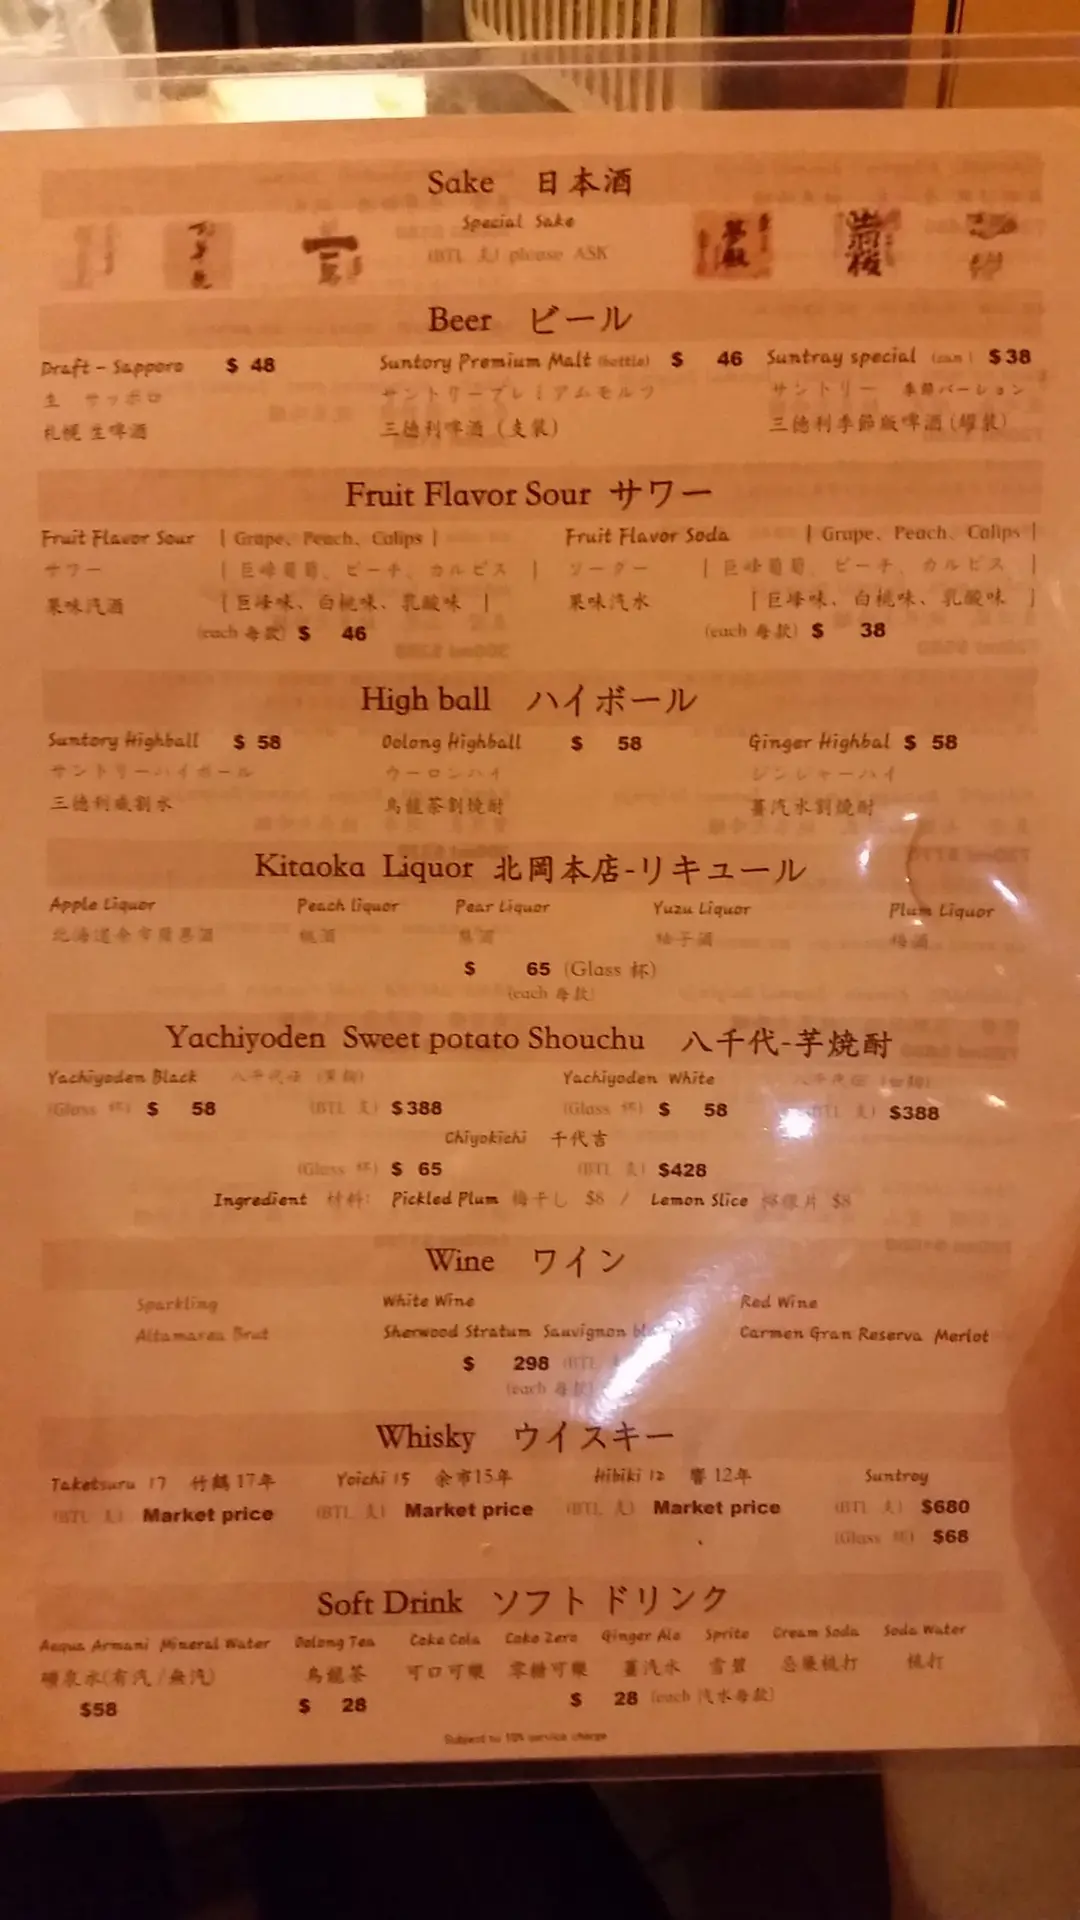 Sake 日本酒
Special Sake
(BTL 支) please ASK
Beer ビール
Draft - Sapporo $ 48 Suntory Premium Malt (bottle) $ 46 Suntray special (can) $ 38
生 サッポロ サントリープレミアムモルツ サントリー 季節バーション
札幌 生啤酒 三德利啤酒 (支裝) 三德利季節版啤酒 (罐裝)
Fruit Flavor Sour サワー
Fruit Flavor Sour | Grape、Peach、Calips | Fruit Flavor Soda | Grape、Peach、Calips |
サワー | 巨峰葡萄、ピーチ、カルピス | ソーダー | 巨峰葡萄、ピーチ、カルピス |
果味汽酒 | 巨峰味、白桃味、乳酸味 | 果味汽水 | 巨峰味、白桃味、乳酸味 |
(each 每款) $ 46 (each 每款) $ 38
High ball ハイボール
Suntory Highball $ 58 Oolong Highball $ 58 Ginger Highbal $ 58
サントリーハイボール ウーロンハイ ジンジャーハイ
三德利威割水 烏龍茶割焼酎 薑汽水割焼酎
Kitaoka Liquor 北岡本店-リキュール
Apple Liquor Peach liquor Pear Liquor Yuzu Liquor Plum Liquor
北海道余市蘋果酒 桃酒 梨酒 柚子酒 梅酒
$ 65 (Glass 杯)
(each 每款)
Yachiyoden Sweet potato Shouchu 八千代-芋焼酎
Yachiyoden Black 八千代伝 (黒麹) Yachiyoden White 八千代伝 (白麹)
(Glass 杯) $ 58 (BTL 支) $388 (Glass 杯) $ 58 (BTL 支) $388
Chiyokichi 千代吉
(Glass 杯) $ 65 (BTL 支) $428
Ingredient 材料: Pickled Plum 梅干し $8 / Lemon Slice 檸檬片 $8
Wine ワイン
Sparkling White Wine Red Wine
Altamarea Brut Sherwood Stratum Sauvignon Carmen Gran Reserva Merlot
$ 298 (BTL
(each 每款)
Whisky ウイスキー
Taketsuru 17 竹鶴 17年 Yoichi 15 余市15年 Hibiki 12 響 12年 Suntroy
(BTL 支) Market price (BTL 支) Market price (BTL 支) Market price (BTL 支) $680
(Glass 杯) $68
Soft Drink ソフトドリンク
Acqua Armani Mineral Water Oolong Tea Coke Cola Coke Zero Ginger Ale Sprite Cream Soda Soda Water
礦泉水(有汽/無汽) 烏龍茶 可口可樂 零糖可樂 薑汽水 雪碧 忌廉梳打 梳打
$58 $ 28 $ 28 (each 汽水每款)
Subject to 10% service charge